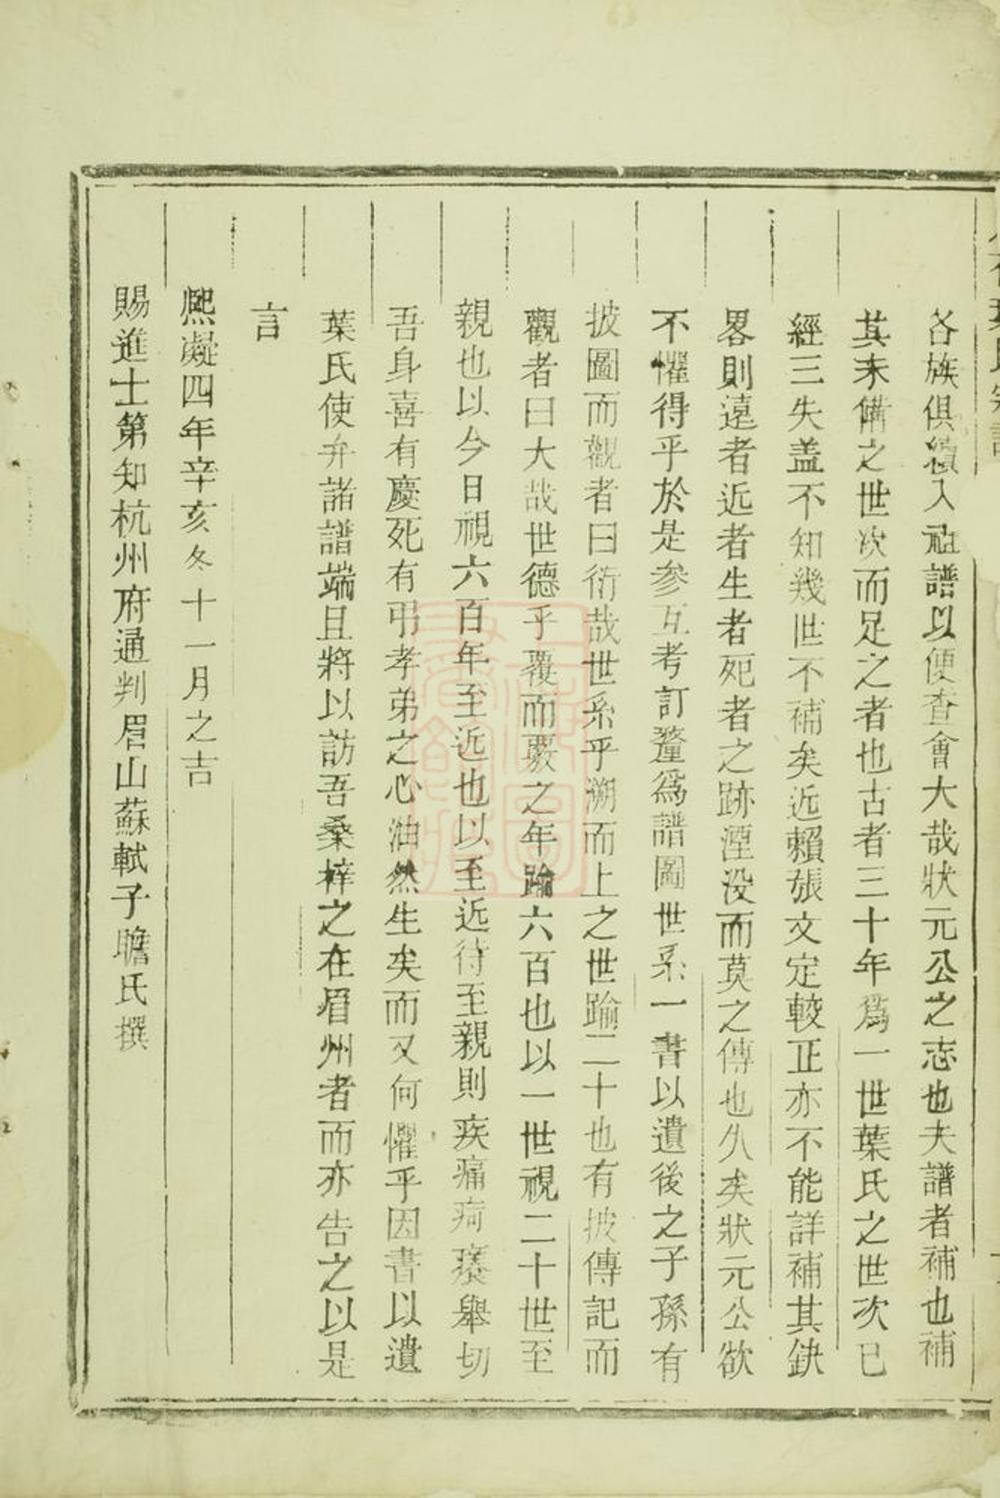 各族俱續入祖譜以便查會大哉狀元公之志也夫譜者補也補
其未備之世次而足之者也古者三十年為一世葉氏之世次已
經三失盖不知幾世不補矣近賴張文定較正亦不能詳補其缺
畧則遠者近者生者死者之跡湮没而莫之傳也久矣狀元公欲
不懼得乎於是参互考訂釐爲譜圖世系一書以遺後之子孫有
披圖而觀者曰衍哉世系乎溯而上之世踰二十也有披傳記而
觀者曰大哉世德乎覆而覈之年踰六百也以一世視二十世至
親也以今日視六百年至近也以至近待至親則疾痛疴癢舉切
吾身喜有慶死有弔孝弟之心油然生矣而又何懼乎因書以遺
葉氏使弁諸譜端且將以訪吾桑梓之在眉州者而亦告之以是
言
熈凝四年辛亥冬十一月之吉
賜進士第知杭州府通判眉山蘇軾子瞻氏撰